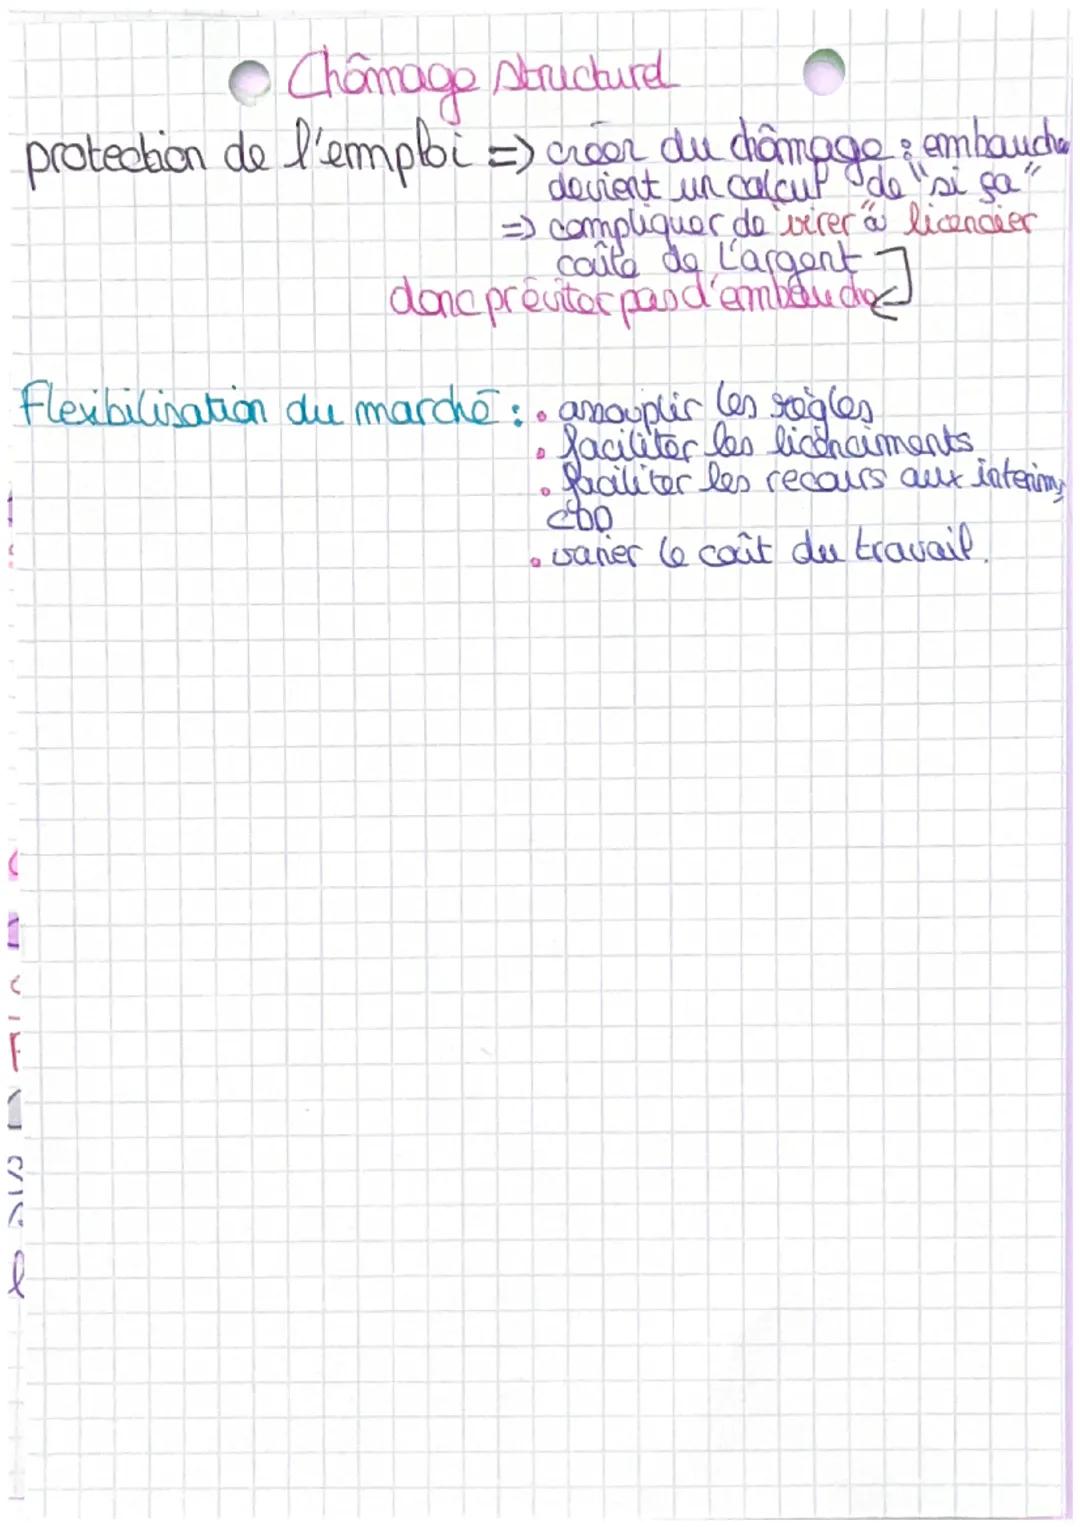 Chômage structurel
protection de l'emploi => créer du chômage : embauche
devient un calcul de "si ça"
=> compliquer de "virer" à licencier
coûte de l'argent
donc préviter pas d'embauche
Flexibilisation du marché : • assouplir les règles
• faciliter les licenciments
• faciliter les recours aux interims,
CDD
• varier le coût du travail.